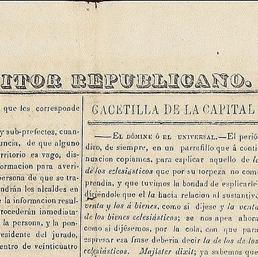 ITOR REPUBLICANO.
que les corresponde
y sub-prefectos, cuan-
uncia, de que alguno
erritorio es vago, dis-
formacion para averi-
persona de que se tra-
ndirán los alcaldes en
e la informacion resul-
rocederán inmediata
la persona, y la pon-
residente del jurado,
entro de veinticuatro
GACETILLA DE LA CAPITAL
—EL DÓMINE Ó EL UNIVERSAL.—El perió
dico, de siempre, en un parrafillo que á conti
nuacion copiamos, para esplicar aquello de la
de los eclesiásticos que por su torpeza no com
prendia, y que tuvimos la bondad de esplicarle
diciéndole que el la hacia relacion al sustantivo
venta y los á bienes, como si dijese y la venta
de los bienes eclesiásticos, se nos apea ahora
como si dijésemos, por la cola, con que para
espresar esa frase deberia decir la de los de los
eclesiásticos. Majister dixit; ya sabemos que